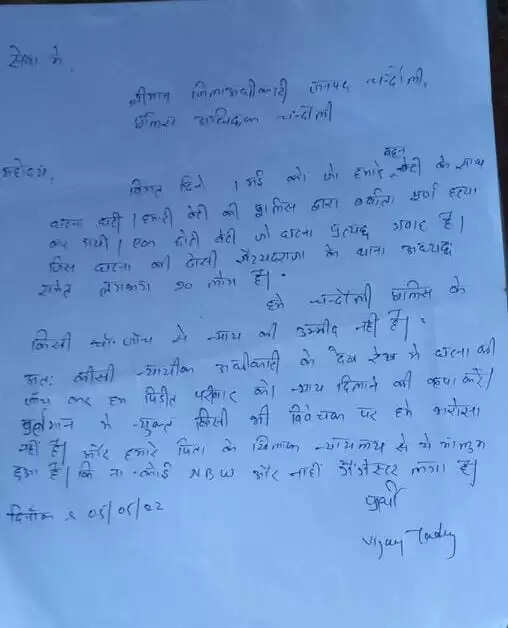 सेवा में,
श्रीमान जिलाअधीकारी जनपद चन्दौली,
पुलिस अधिक्षक चन्दौली
महोदय,
विगत दिनो 1 मई को जो हमारे बहन बेटी के साथ
घटना घटी। हमारी बेटी की पुलिस द्वारा बर्बरता पूर्ण हत्या
कर दी गयी। एक छोटी बेटी जो घटना प्रत्यक्ष गवाह है।
जिस घटना की दोसी सैय्यदराजा के थाना अध्यक्ष
समेत लगभग 20 लोग है।
हमे चन्दौली पुलिस के
किसी भी जाँच से न्याय की उम्मीद नहीं है।
अतः किसी न्यायीक अधीकारी के देख रेख मे घटना की
जाँच कर हम पिडीत परिवार को न्याय दिलाने की कृपा करें।
वर्तमान मे नियुक्त किसी भी विवेचक पर हमे भरोसा
नहीं है। और हमारे पिता के खिलाफ न्यायलय से ये मालुम
हुआ है। कि ना कोई NBW और नाही गैंगेस्टर लगा है।
दिनाँक 05/05/22
प्रार्थी
Vijay Yadav